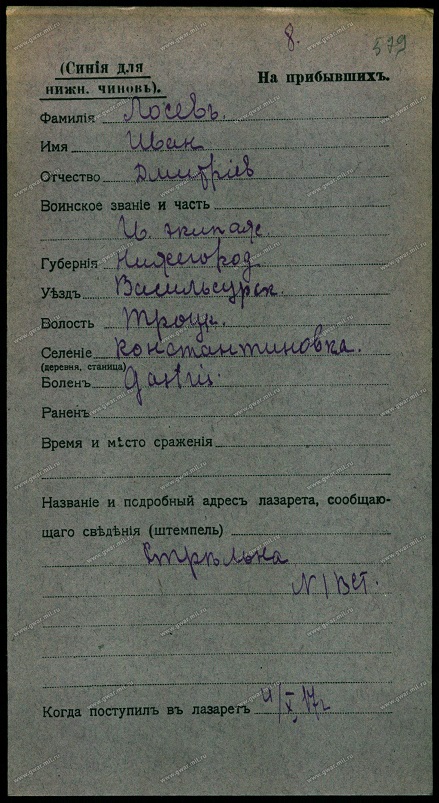 8.
579
(Синія для
нижн. чиновъ).
На прибывшихъ.
Фамилія Лосевъ.
Имя Иван
Отчество Дмитріев
Воинское званіе и часть
Губернія Нижегород
Уѣздъ Васильсурск.
Волость Троцк.
Селеніе Константиновка.
(деревня, станица)
Боленъ
Раненъ
Время и мѣсто сраженія
Названіе и подробный адресъ лазарета, сообщаю-
щаго свѣдѣнія (штемпель)
Стрѣльна
N 1 ВСТ.
Когда поступилъ въ лазаретъ 4/X 17г
www.gwar.mil.ru